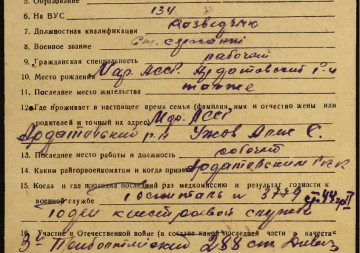 5. Образование
6. На ВУС 134
7. Должностная квалификация Разведчик
8. Военное звание Ст. сержант
9. Гражданская специальность рабочий
10. Место рождения Мар. АССР. Ардатовский р-н
11. Последнее место жительства также
12. Где проживает в настоящее время семья (фамилия, имя и отчество жены или
родителей и точный их адрес) Мар. АССР
Ардатовский р-н Ужов
13. Последнее место работы и должность рабочий
14. Каким райгорвоенкоматом и когда призван Ардатовским РВК
15. Когда и где проходил последний раз медкомиссию и результат годности к
военной службе Госпиталь № 3779
годен к строевой службе
16. Участие в Отечественной войне (в составе какой части и в качестве
3й Прибалтийский 288 стр. дивиз